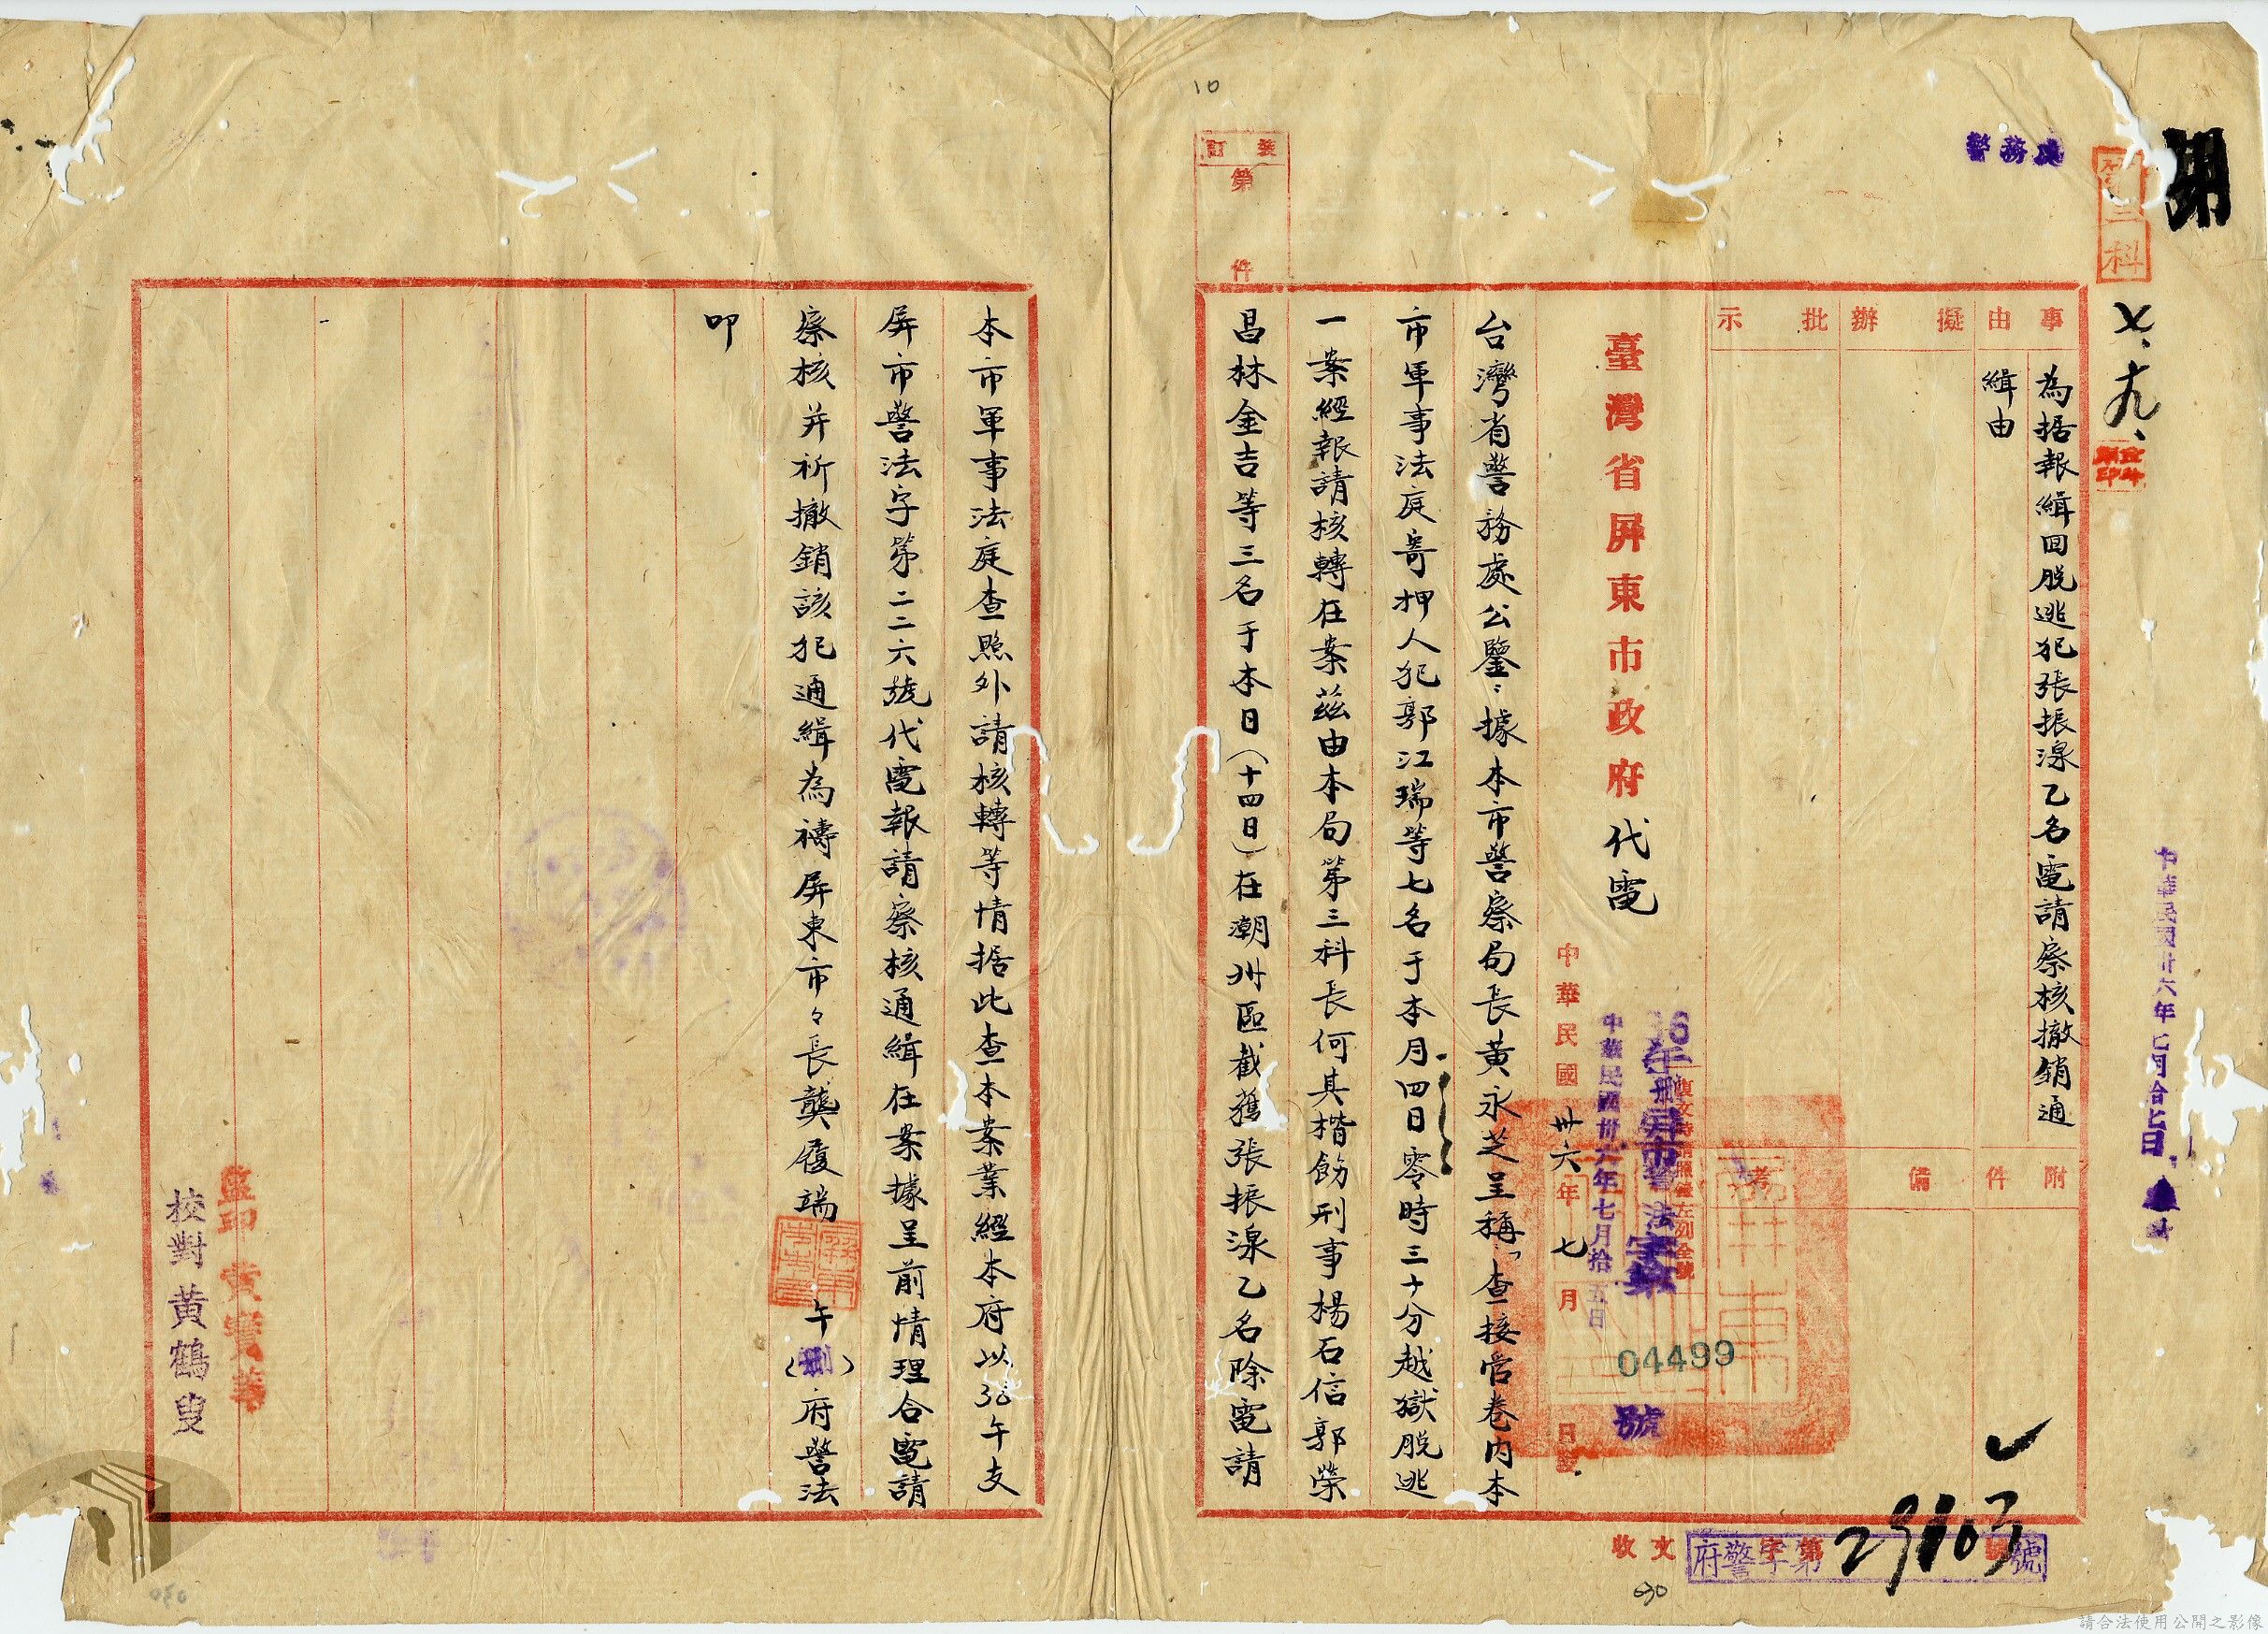 10
警務處
第三科
七、十九、
中華民國卅六年七月拾七日
裝訂
第
件
事由
為据報緝回脫逃犯張振湶乙名電請察核撤銷通
緝由
擬辦
批示
附件
備考
臺灣省屏東市政府代電
復文時請照錄左列全號
屏市警法字第
04499
號
中華民國卅六年七月拾五日
中華民國卅六年七月 日發
台灣省警務處公鑒：據本市警察局長黃永芝呈稱：「查接管卷內本
市軍事法庭寄押人犯郭江瑞等七名于本月四日零時三十分越獄脫逃
一案經報請核轉在案茲由本局第三科長何其楷飭刑事楊石信郭榮
昌林金吉等三名于本日（十四日）在潮州區截獲張振湶乙名除電請
收文 字第 號
府警字第 號
29103
030
本市軍事法庭查照外請核轉等情据此查本案業經本府以36午支
屏市警法字第二二六號代電報請察核通緝在案據呈前情理合電請
察核并祈撤銷該犯通緝為禱屏東市々長龔履端午（刪）府警法
叩
監印 黃寶
校對 黃鶴叟
030
請合法使用公開之影像